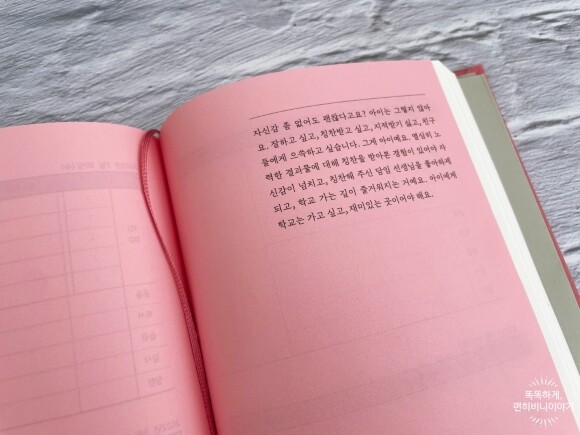 자신감 좀 없어도 괜찮다고요? 아이는 그렇지 않아
요. 잘하고 싶고, 칭찬받고 싶고, 지적받기 싫고, 친구
들에게 으쓱하고 싶습니다. 그게 아이예요. 열심히 노
력한 결과물에 대해 칭찬을 받아본 경험이 있어야 자
신감이 넘치고, 칭찬해 주신 담임 선생님을 좋아하게
되고, 학교 가는 길이 즐거워지는 거예요. 아이에게
학교는 가고 싶고, 재미있는 곳이어야 해요.
똑똑하게,
편히비니이야기